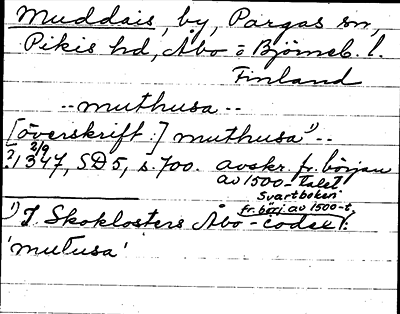 Muddais, by, Pargas sn,
Pikis hd, Åbo o Björneb. l.
Finland
-- muthusa --
[överskrift:] muthusa¹⁾ --
2/9
?, 1347, SD 5, s. 700. avskr. fr. början
av 1500-talet
Svartboken
fr. börj. av 1500-t.
¹⁾ I Skoklosters Åbo-codex:
'mutusa'